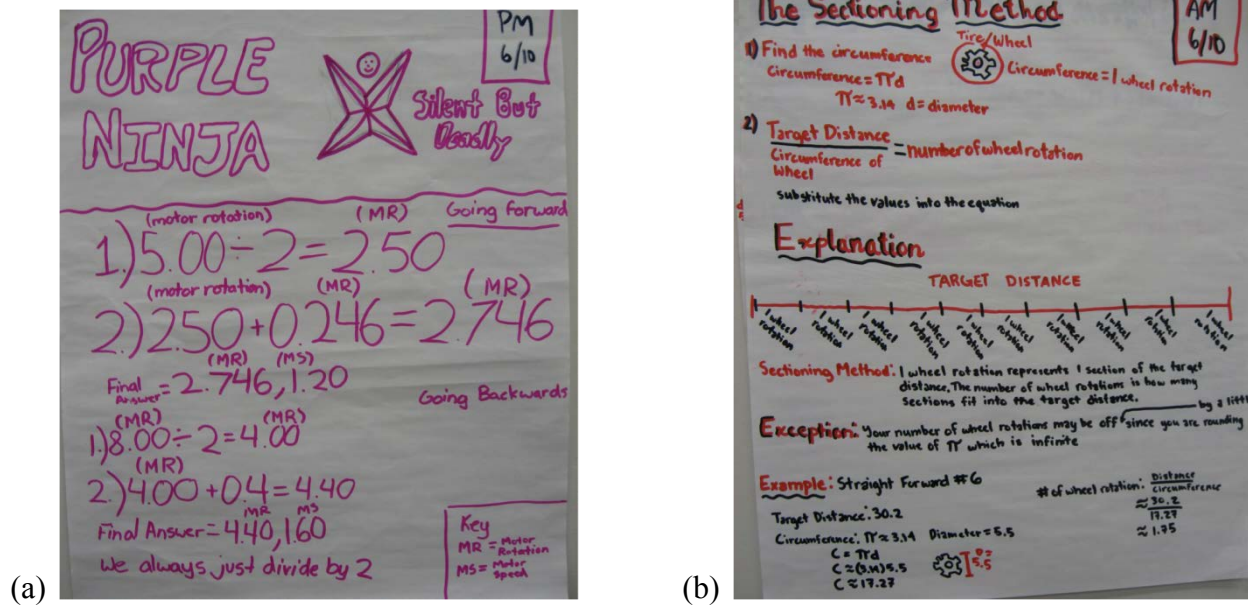 PM
6/10
PURPLE
NINJA
Silent But
Deadly
(motor rotation) (MR) Going forward
1.) 5.00 ÷ 2 = 2.50
(motor rotation) (MR) (MR)
2.) 2.50 + 0.246 = 2.746
(MR) (MS)
Final Answer = 2.746, 1.20
Going Backwards
(MR) (MR)
1.) 8.00 ÷ 2 = 4.00
(MR)
2.) 4.00 + 0.4 = 4.40
MR MS
Final Answer = 4.40, 1.60
We always just divide by 2
Key
MR = Motor Rotation
MS = Motor Speed
(a)
The Sectioning Method
AM
6/10
1) Find the circumference
Circumference = πd
π ≈ 3.14 d = diameter
Tire/Wheel
Circumference = 1 wheel rotation
2) Target Distance
Circumference of
Wheel
= number of wheel rotation
substitute the values into the equation
Explanation
TARGET DISTANCE
1 wheel rotation
1 wheel rotation
1 wheel rotation
1 wheel rotation
1 wheel rotation
1 wheel rotation
1 wheel rotation
1 wheel rotation
1 wheel rotation
1 wheel rotation
Sectioning Method: 1 wheel rotation represents 1 section of the target
distance. The number of wheel rotations is how many
sections fit into the target distance.
by a little
Exception: Your number of wheel rotations may be off since you are rounding
the value of π which is infinite
Example: Straight Forward #6
Target Distance: 30.2
Circumference: π ≈ 3.14 Diameter = 5.5
C = πd
C ≈ (3.14) 5.5
C ≈ 17.27
D=
5.5
# of wheel rotation: Distance
Circumference
≈ 30.2
17.27
≈ 1.75
(b)